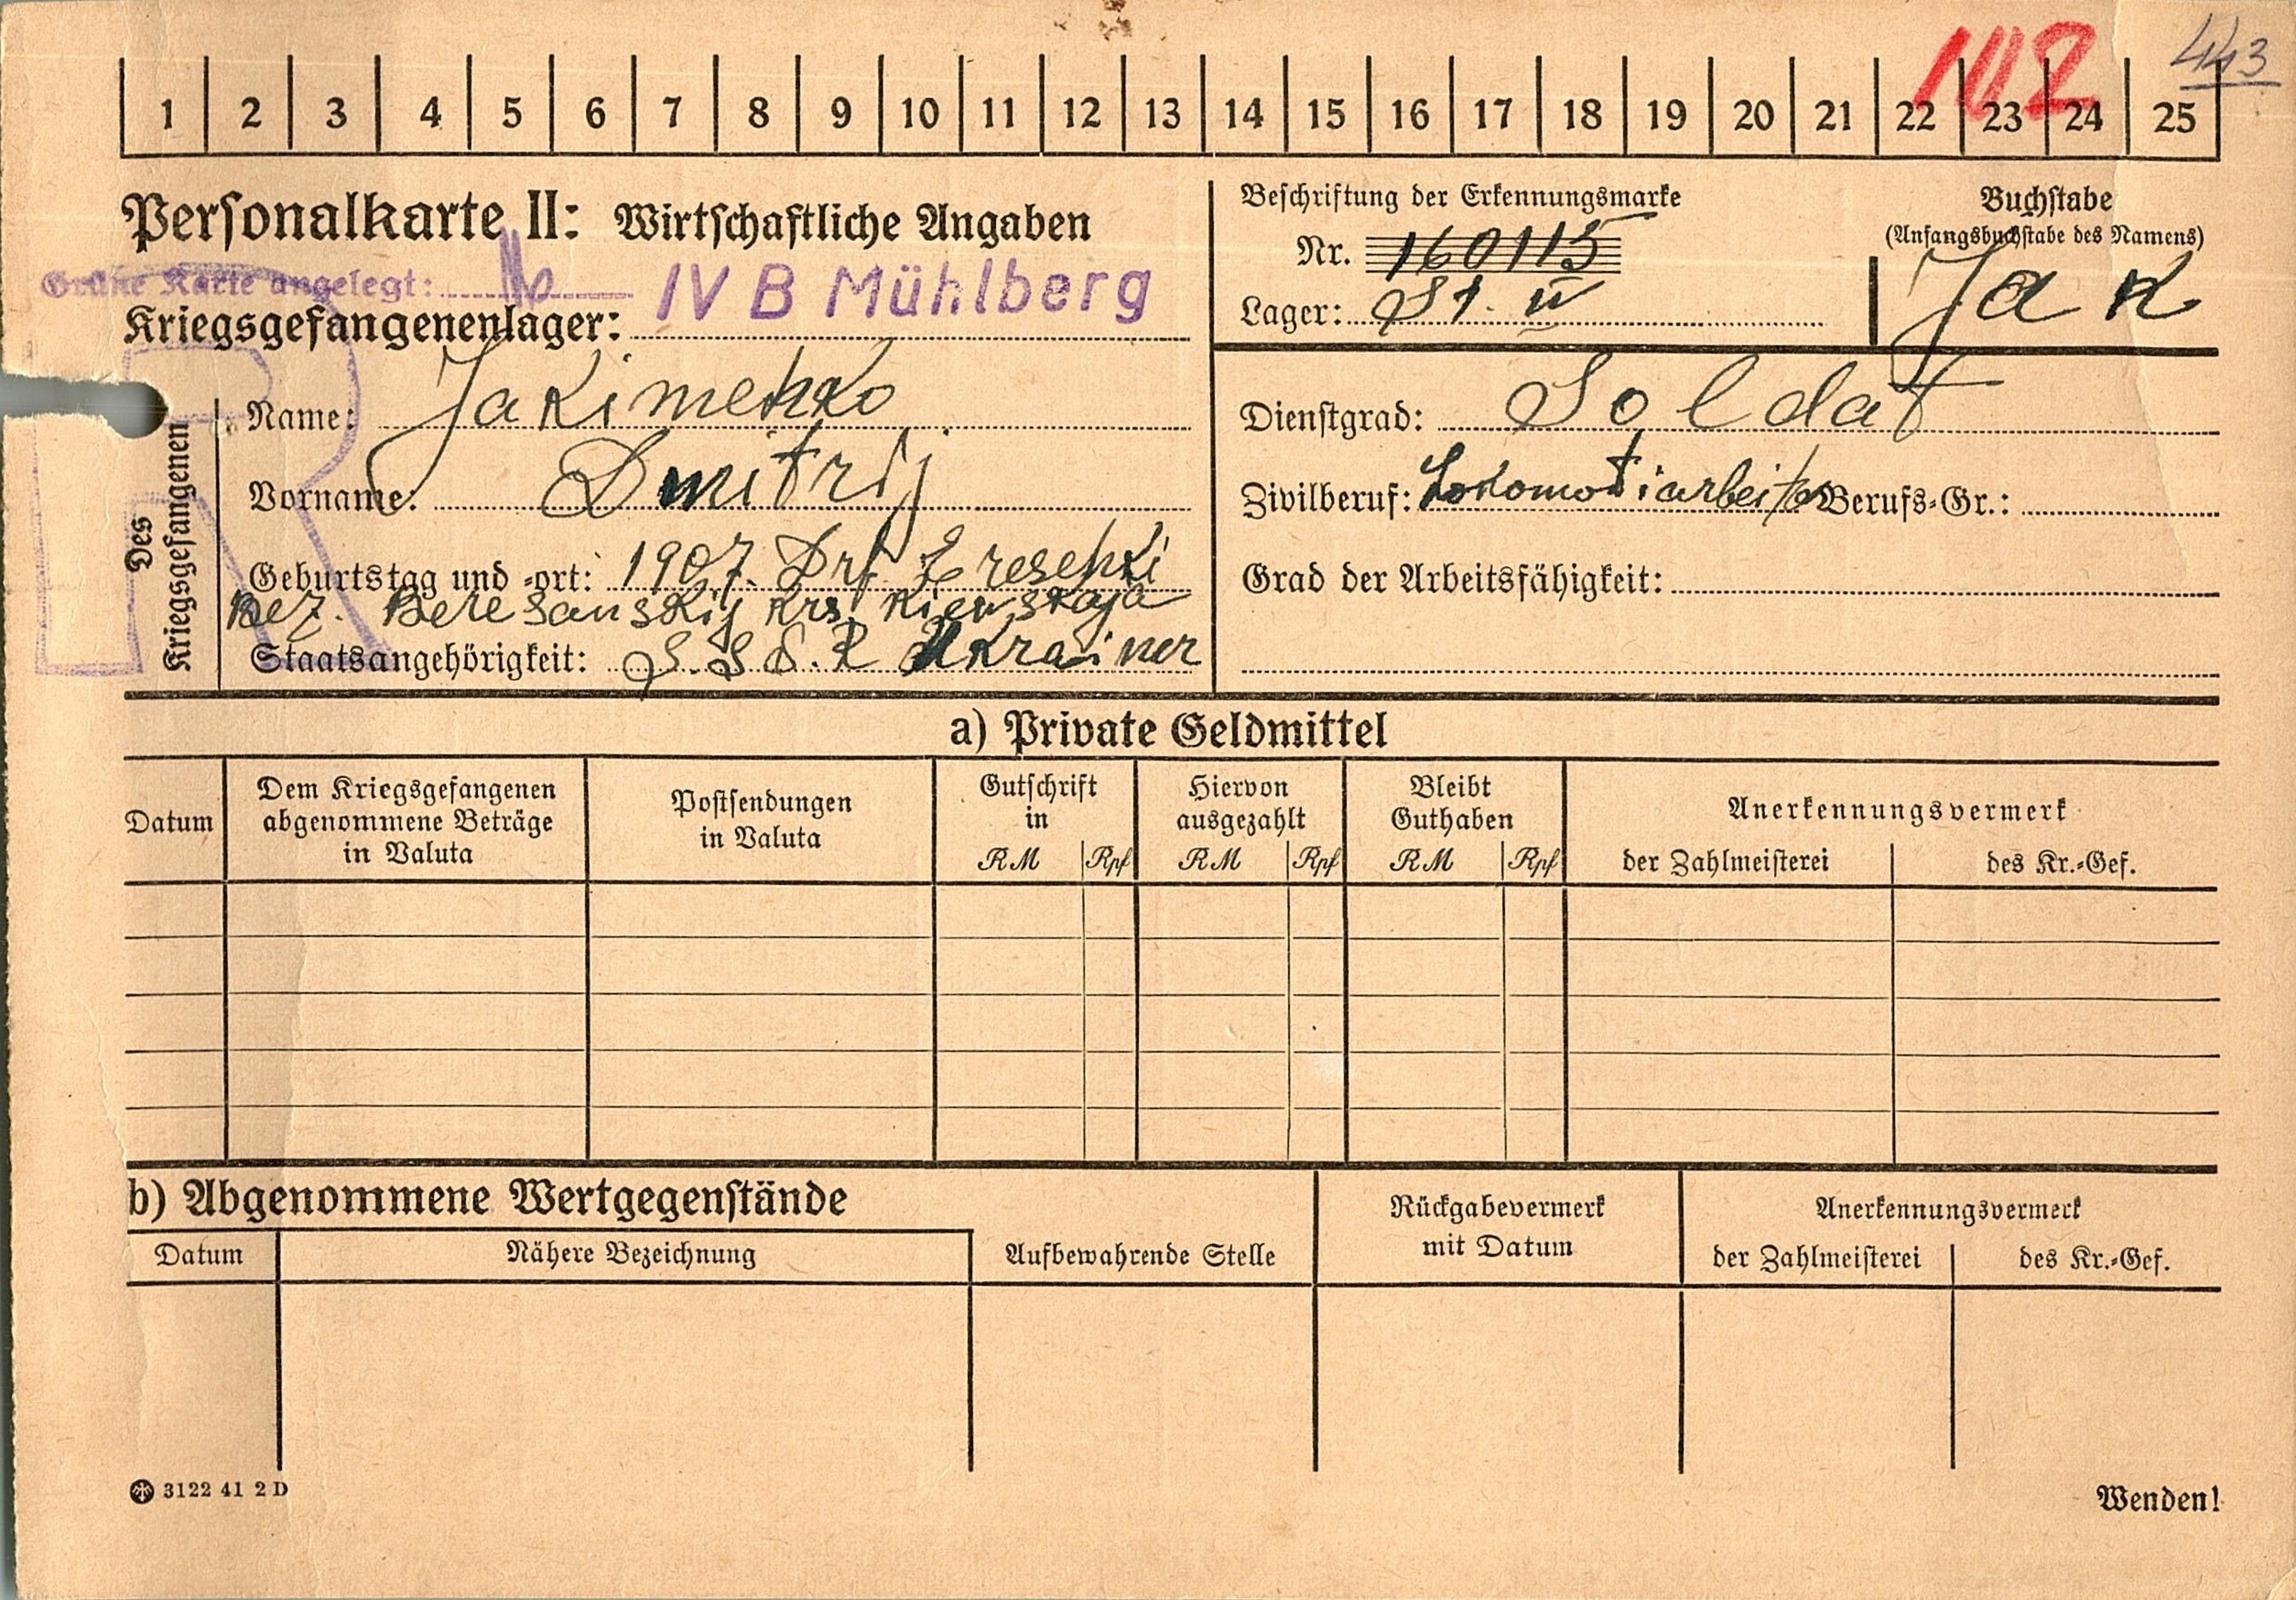 443
1 2 3 4 5 6 7 8 9 10 11 12 13 14 15 16 17 18 19 20 21 22 23 24 25
Personalkarte II: Wirtschaftliche Angaben
Grüne Karte angelegt:
Kriegsgefangenenlager: IV B Mühlberg
Beschriftung der Erkennungsmarke
Nr. 160115
Lager: St. IV
Buchstabe
(Anfangsbuchstabe des Namens)
Jak
Des Kriegsgefangenen
Name: Jakimenko
Vorname: Dmitrij
Geburtstag und -ort: 1907. Drf.
Bez. Beresanskij Krs. Kiewskaja
Staatsangehörigkeit: S.S.S.R Ukrainer
Dienstgrad: Soldat
Zivilberuf: Lokomotiarbeiter Berufs-Gr.:
Grad der Arbeitsfähigkeit:
a) Private Geldmittel
Datum
Dem Kriegsgefangenen
abgenommene Beträge
in Valuta
Postsendungen
in Valuta
Gutschrift
in
RM Rpf
Hiervon
ausgezahlt
RM Rpf
Bleibt
Guthaben
RM Rpf
Anerkennungsvermerk
der Zahlmeisterei des Kr.-Gef.
b) Abgenommene Wertgegenstände
Datum
Nähere Bezeichnung
Aufbewahrende Stelle
Rückgabevermerk
mit Datum
Anerkennungsvermerk
der Zahlmeisterei des Kr.-Gef.
3122 41 2 D
Wenden!